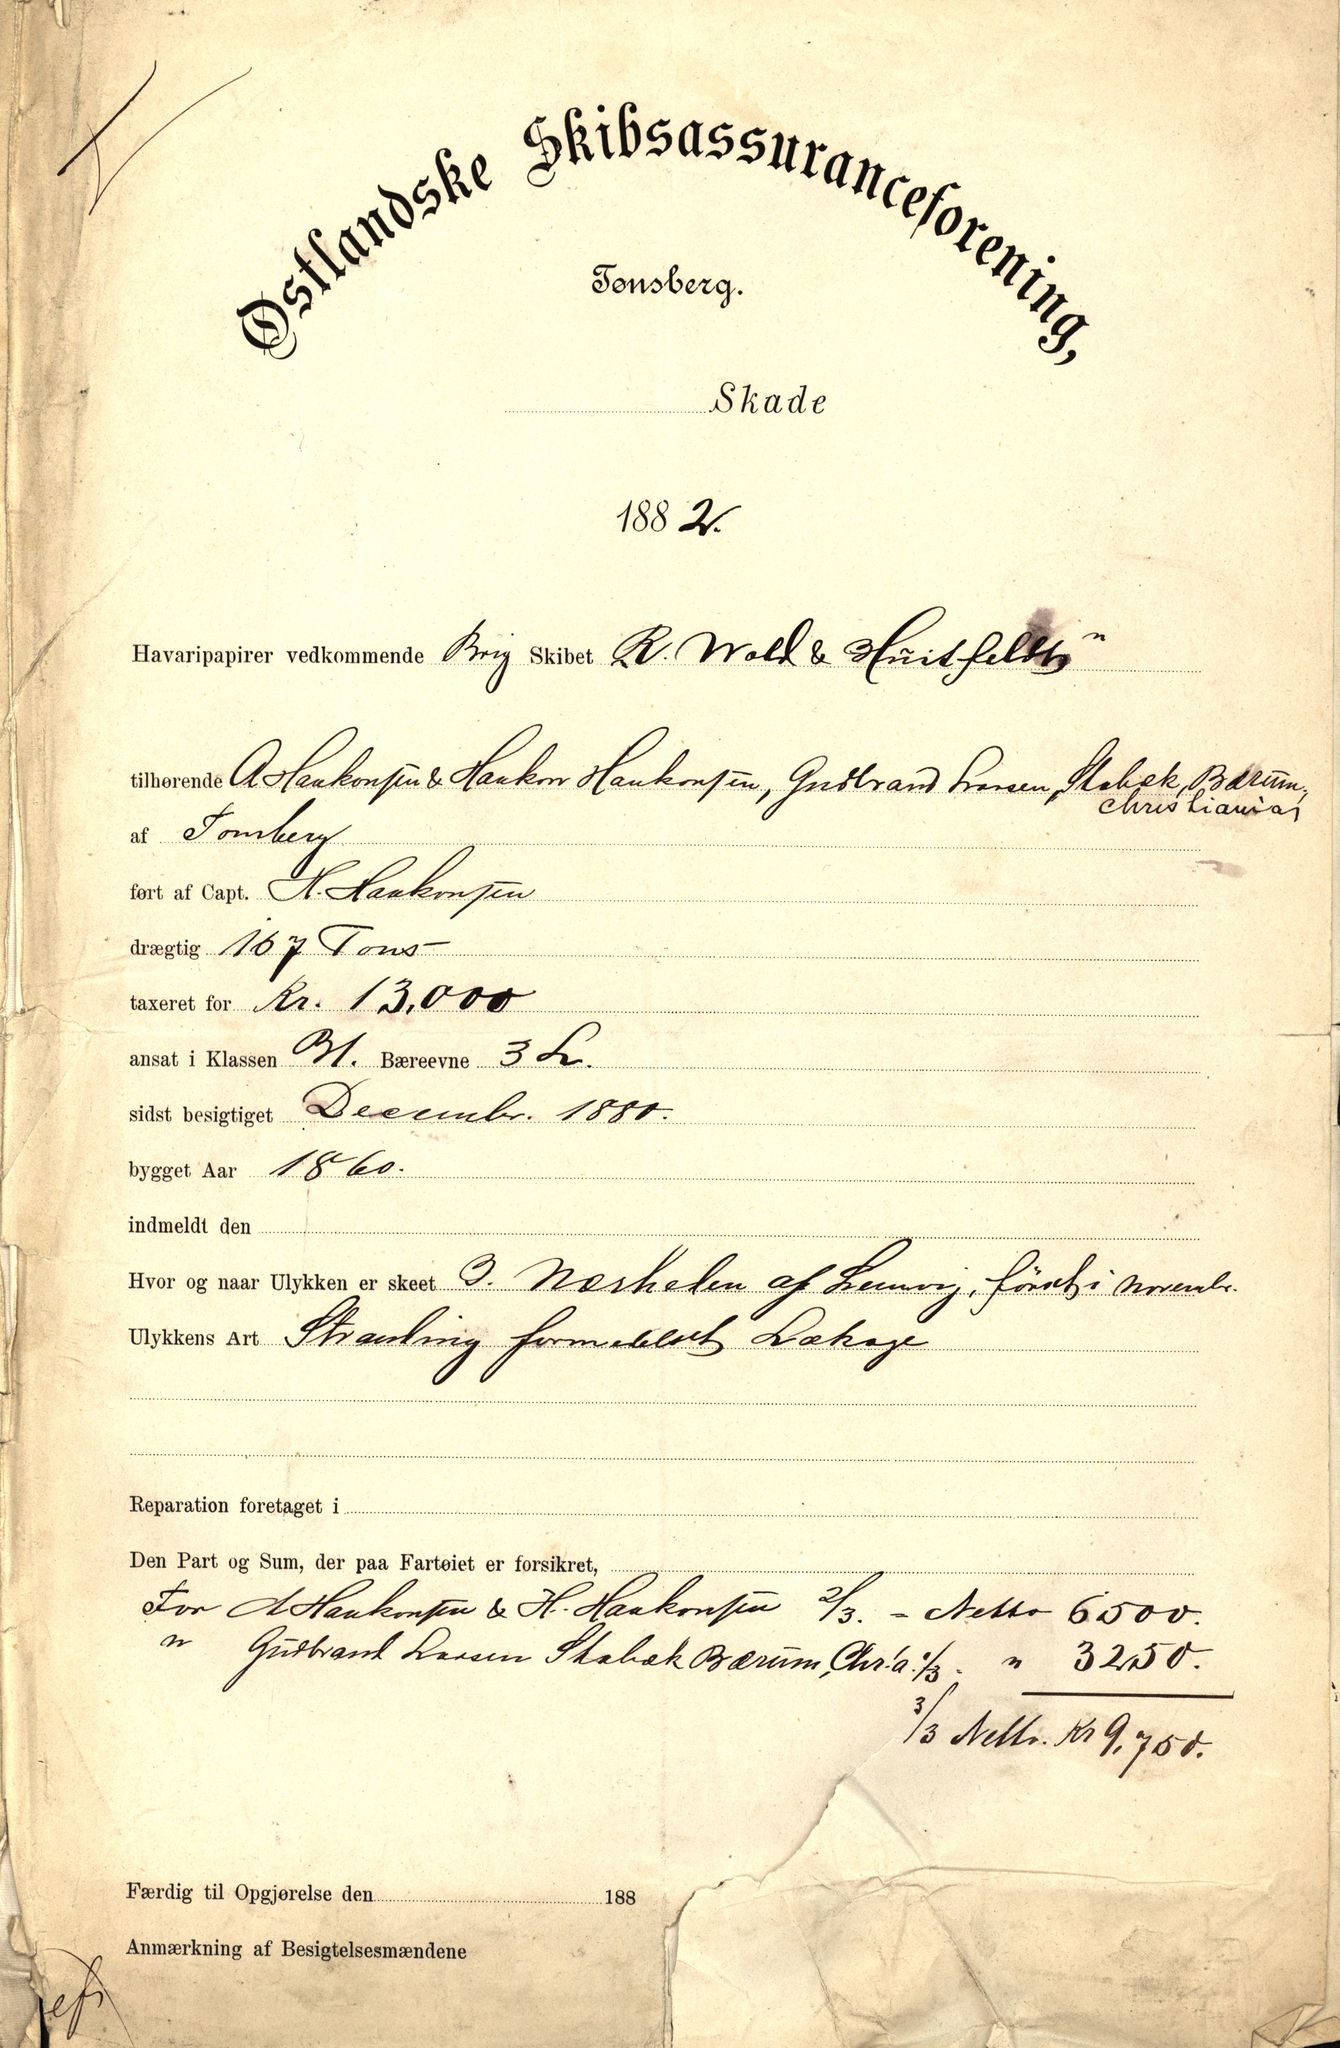 Østlandske Skibsassuranceforening,
Tønsberg.
Skade
1882.
Havaripapirer vedkommende Brig Skibet "R. Wold & Huitfeldt"
tilhørende A Haakonsen & Haakon Haakonsen, Gudbrand Larsen, Stabæk, Bærum,
Christiania,
af Tønsberg
ført af Capt. H. Haakonsen
drægtig 167 Tons
taxeret for Kr. 13,000
ansat i Klassen B1. Bæreevne 3 L.
sidst besigtiget Decembr. 1880.
bygget Aar 1860.
indmeldt den
Hvor og naar Ulykken er skeet I Nærheden af Lemvig, først i Novembr.
Ulykkens Art Stranding formedelst Lækage
Reparation foretaget i
Den Part og Sum, der paa Fartøiet er forsikret,
For A Haakonsen & H. Haakonsen 2/3. - Netto 6500.
" Gudbrand Larsen Stabæk Bærum, Chr.a. 1/3. " 3250.
3/3 Netto. Kr 9,750.
Færdig til Opgjørelse den 188
Anmærkning af Besigtelsesmændene